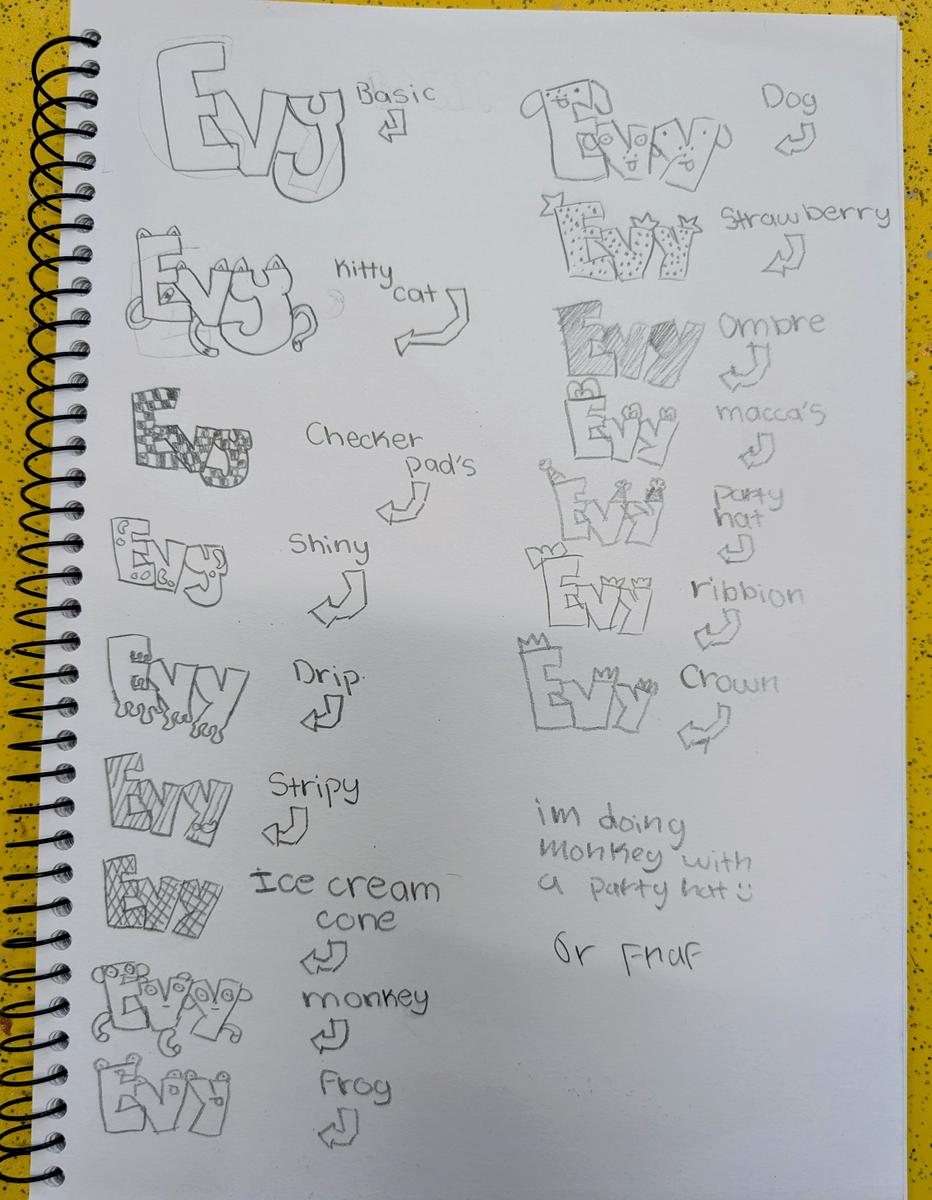 Evy Basic
Evy Kitty
cat
Evy Checker
pad's
Evy Shiny
Evy Drip.
Evy Stripy
Evy Ice cream
cone
Evy monkey
Evy Frog
Evy Dog
Evy Strawberry
Evy Ombre
Evy macca's
Evy party
hat
Evy ribbion
Evy Crown
im doing
monkey with
a party hat
Or FnaF